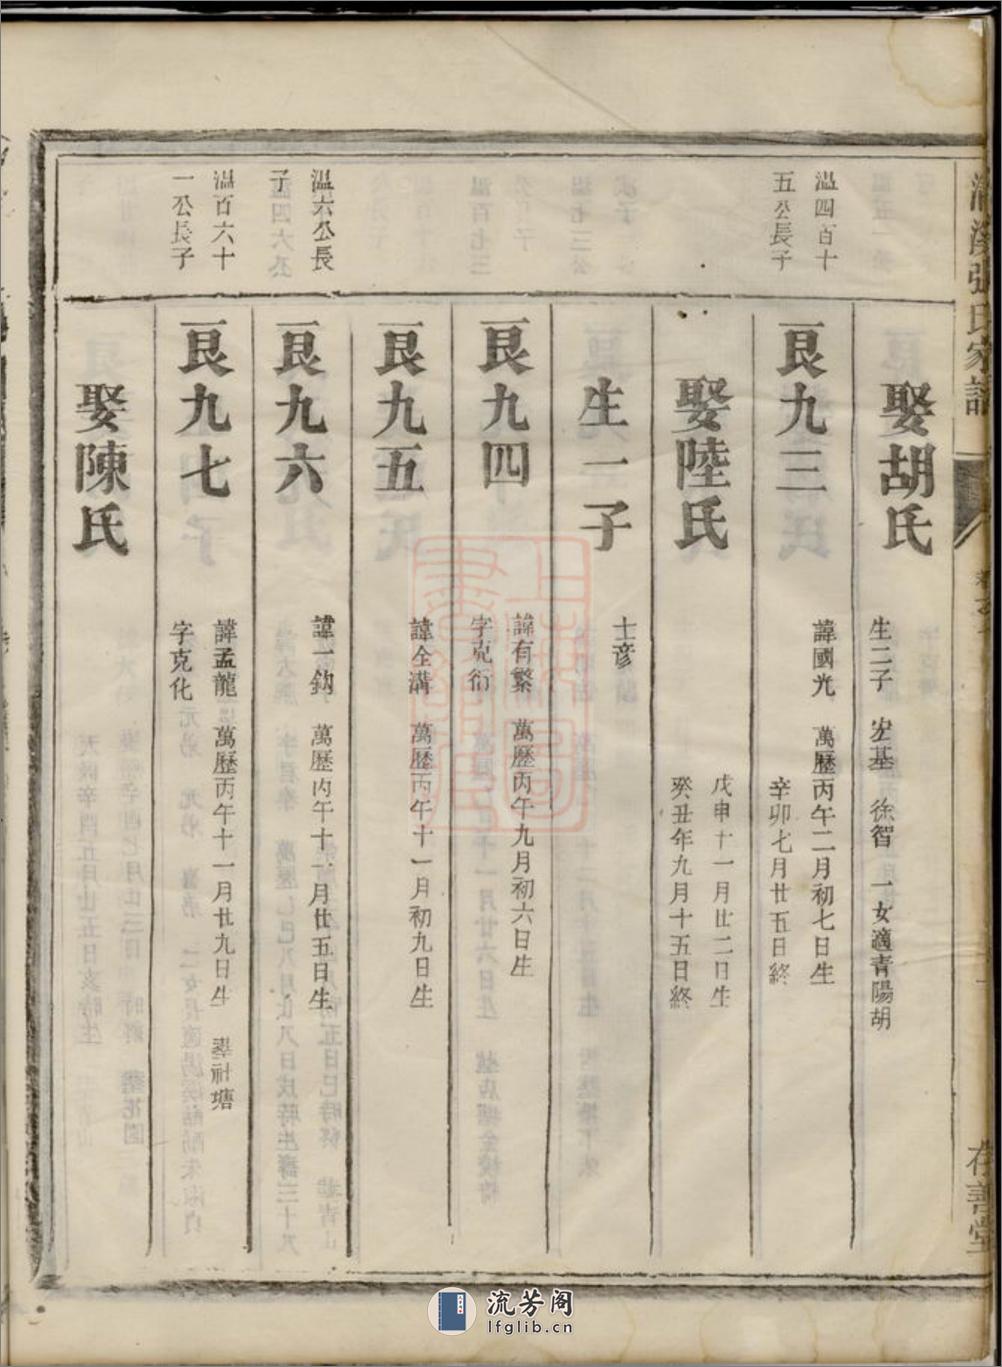 張氏家譜
存善堂
娶胡氏
生二子 宏基 徐智 一女適青陽胡
溫四百十
五公長子
艮九三
諱國光 萬歷丙午二月初七日生
辛卯七月廿五日終
娶陸氏
戊申十一月廿二日生
癸丑年九月十五日終
生一子
士彦
艮九四
諱有繁 萬歷丙午九月初六日生
字克衍
艮九五
諱全溝 萬歷丙午十一月初九日生
溫六公長
子
艮九六
諱一鈎 萬歷丙午十一月廿五日生
溫百六十
一公長子
艮九七
諱孟龍 萬歷丙午十一月廿九日生 塟社塘
字克化
娶陳氏
流芳阁
lfglib.cn